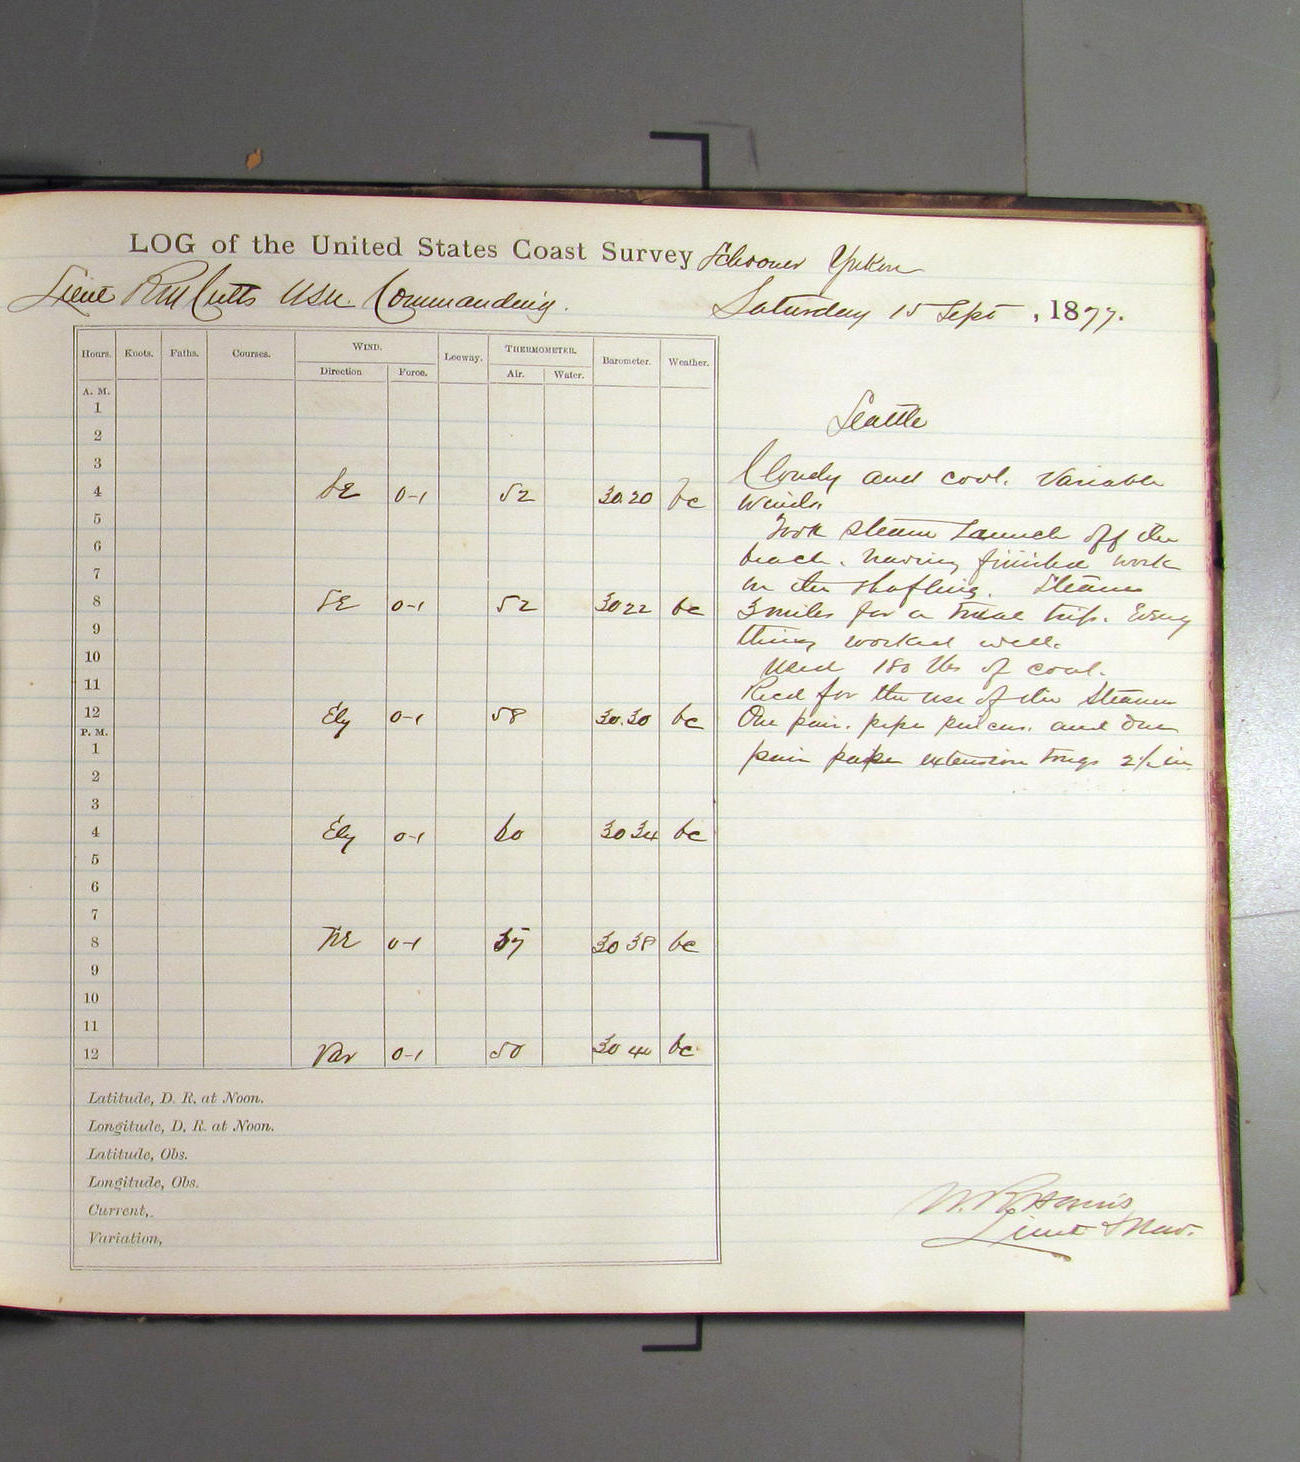 LOG of the United States Coast Survey Schooner Yukon
Lieut R M Cutts USN Commanding.
Saturday 15 Sept , 1877.
Hours. Knots. Faths. Courses. WIND. Leeway. THERMOMETER. Barometer. Weather.
Direction Force. Air. Water.
A. M.
1
2
3
4 SE 0-1 52 30.20 bc
5
6
7
8 SE 0-1 52 30 22 bc
9
10
11
12 Ely 0-1 58 30.30 bc
P. M.
1
2
3
4 Ely 0-1 60 30 34 bc
5
6
7
8 NE 0-1 57 30 38 bc
9
10
11
12 Var 0-1 50 30 40 bc
Latitude, D. R. at Noon.
Longitude, D. R. at Noon.
Latitude, Obs.
Longitude, Obs.
Current,
Variation,
Seattle
Cloudy and cool. Variable
winds.
Took steam Launch off the
beach. having finished work
on the shafting. Steamed
3 miles for a trial trip. Every
thing worked well.
Used 180 lbs of coal.
Recd for the use of the Steamer
One pair. pipe and One
pair pipe extension tongs 2 1/2 in
Lieut & Nav.